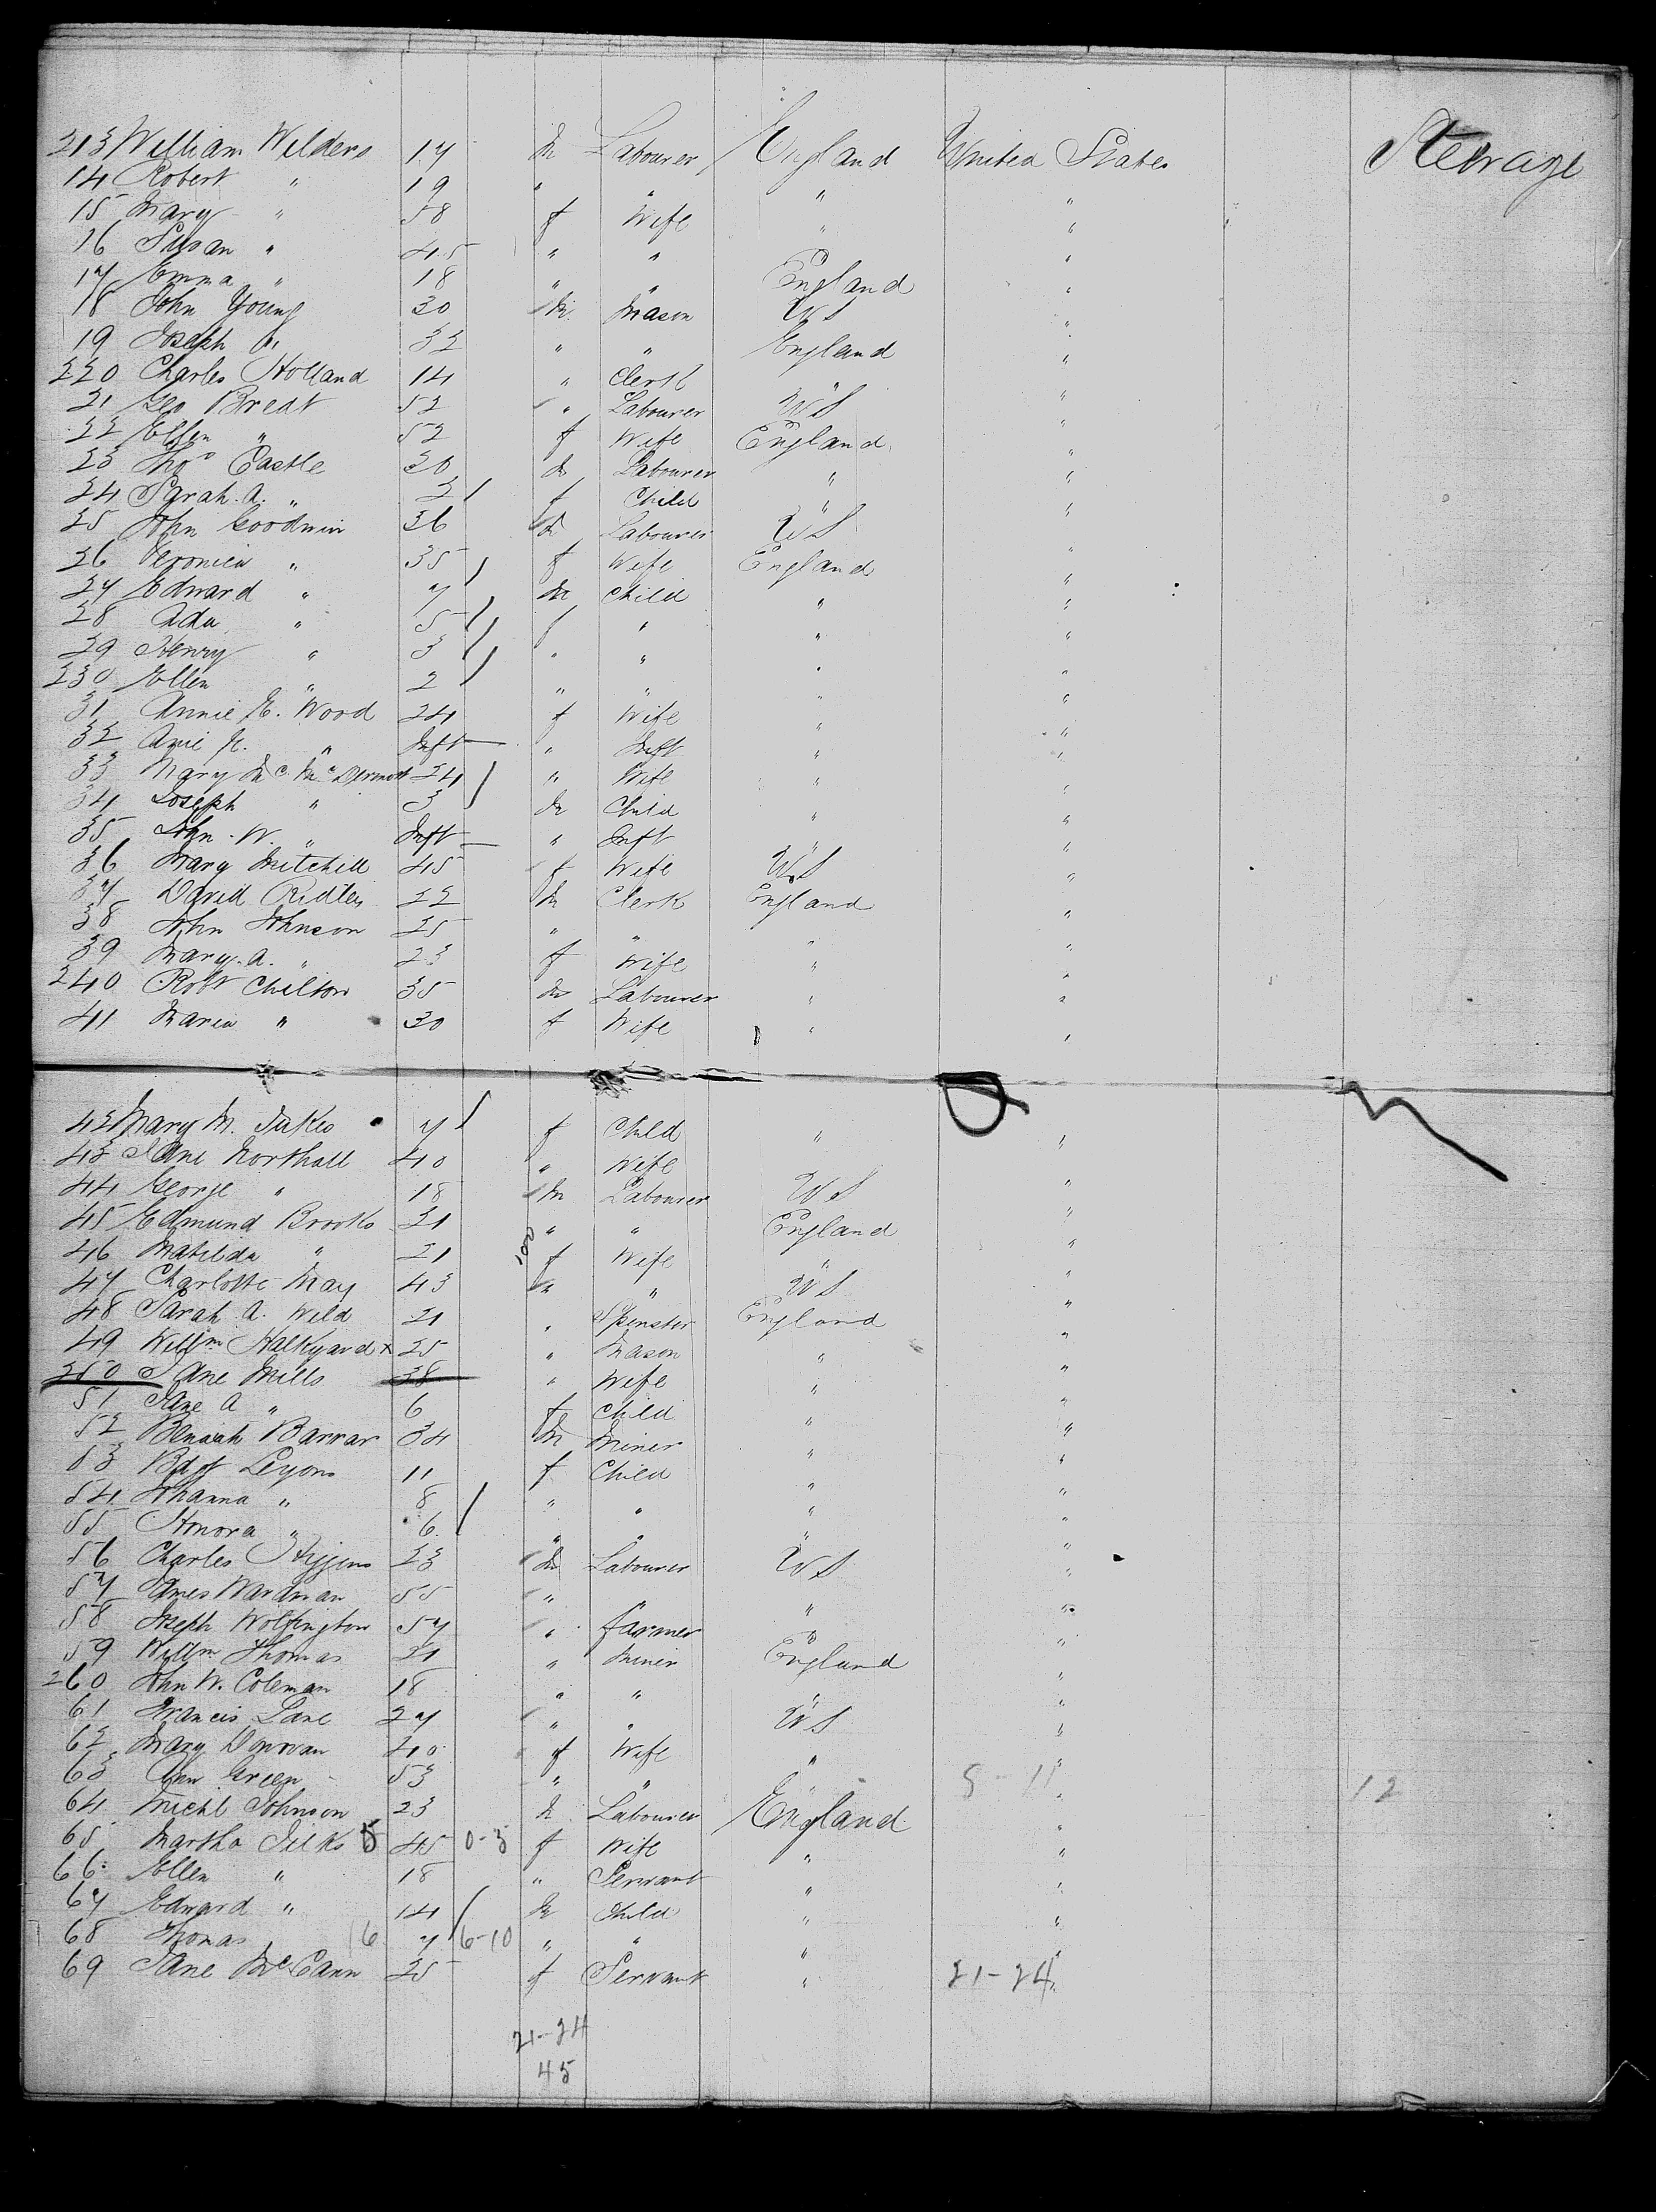 213 William Wilders 17 m Labourer England United States Steerage
14 Robert " 19 " " " "
15 Mary " 58 f Wife " "
16 Susan " 45 " " "
17 Emma " 18 " " England "
18 John Young 30 m Mason US "
19 Joseph " 32 " " England "
220 Charles Holland 14 " Clerk " "
21 Geo Breat 52 " Labourer US "
22 Ellen " 52 f Wife England "
23 Thos Castle 30 m Labourer " "
24 Sarah. A. " 2 f Child " "
25 John Goodwin 36 m Labourer US "
26 Veronica " 35 f Wife England "
27 Edward " 7 m Child " "
28 Ada " 5 f " " "
29 Henry " 3 " " " "
230 Ellen " 2 " " " "
31 Annie E. Wood 24 f Wife " "
32 " Inft " Inft " "
33 Mary Mc McDermott 24 " Wife " "
34 Joseph " 3 m Child " "
35 John. W. " Inft " Inft " "
36 Mary Mitchell 45 f Wife US "
37 David Ridley 22 m Clerk England "
38 John Johnson 25 " " " "
39 Mary. A. " 23 f Wife " "
240 Robt Chilton 35 m Labourer " "
41 Maria " 30 f Wife " "
42 Mary M. 7 f Child " "
43 Jane Northall 40 " Wife "
44 George " 18 m Labourer US "
45 Edmund Brooks 21 " " England "
46 Matilda " 21 f Wife " "
47 Charlotte May 43 " " US "
48 Sarah A. Wild 21 " Spinster England "
49 Willm Halkyard x 25 " Mason " "
250 Jane Mills 38 " Wife " "
51 Jane A " 6 f Child " "
52 Benaiah Barrar 34 m Miner " "
53 Bdgt Leyons 11 f Child " "
54 Johanna " 8 " " " "
55 Honora " 6 " " " "
56 Charles Higgins 23 m Labourer US "
57 James Wardman 55 " " " "
58 Joseph Wolfington 57 " farmer " "
59 Willm Thomas 21 " Miner England "
260 John W. Coleman 18 " " " "
61 Francis Lane 27 " " US "
62 Mary Donovan 40 f Wife " "
63 Ann Green 53 " " " 5-11 12
64 Michl Johnson 23 m Labourer England "
65 Martha Silks 5 45 0-5 f Wife " "
66 Ellen " 18 " Servant " "
67 Edward " 14 m Child " "
68 Thomas 16 7 6-10 " " " "
69 Jane McCann 25 f Servant " 21-24
21-24
45